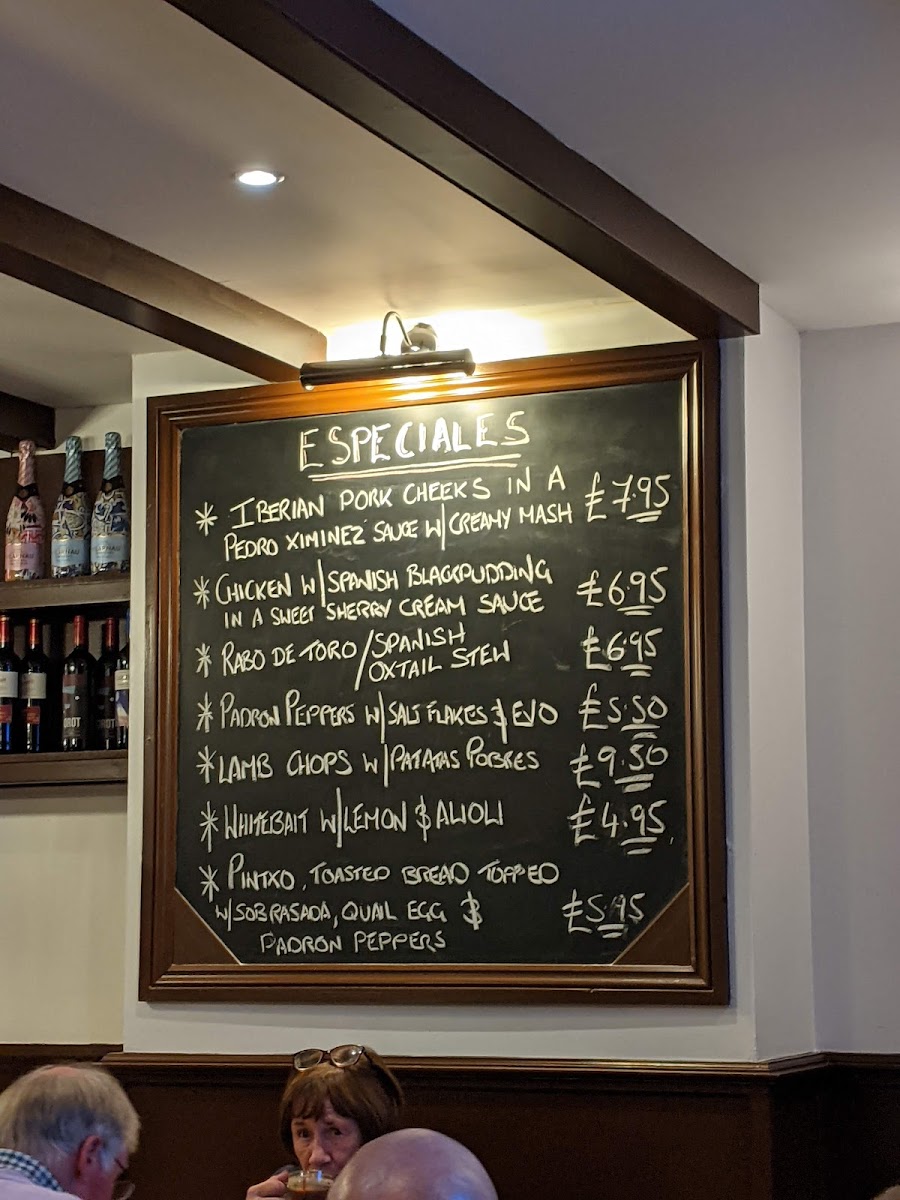 ESPECIALES
* IBERIAN PORK CHEEKS IN A £7.95
PEDRO XIMINEZ SAUCE W/ CREAMY MASH
* CHICKEN W/ SPANISH BLACKPUDDING £6.95
IN A SWEET SHERRY CREAM SAUCE
* RABO DE TORO / SPANISH £6.95
OXTAIL STEW
* PADRON PEPPERS W/ SALT FLAKES & EVO £5.50
* LAMB CHOPS W/ PATATAS POBRES £9.50
* WHITEBAIT W/ LEMON & ALIOLI £4.95
* PINTXO, TOASTED BREAD TOPPED
W/ SOBRASADA, QUAIL EGG & £5.95
PADRON PEPPERS